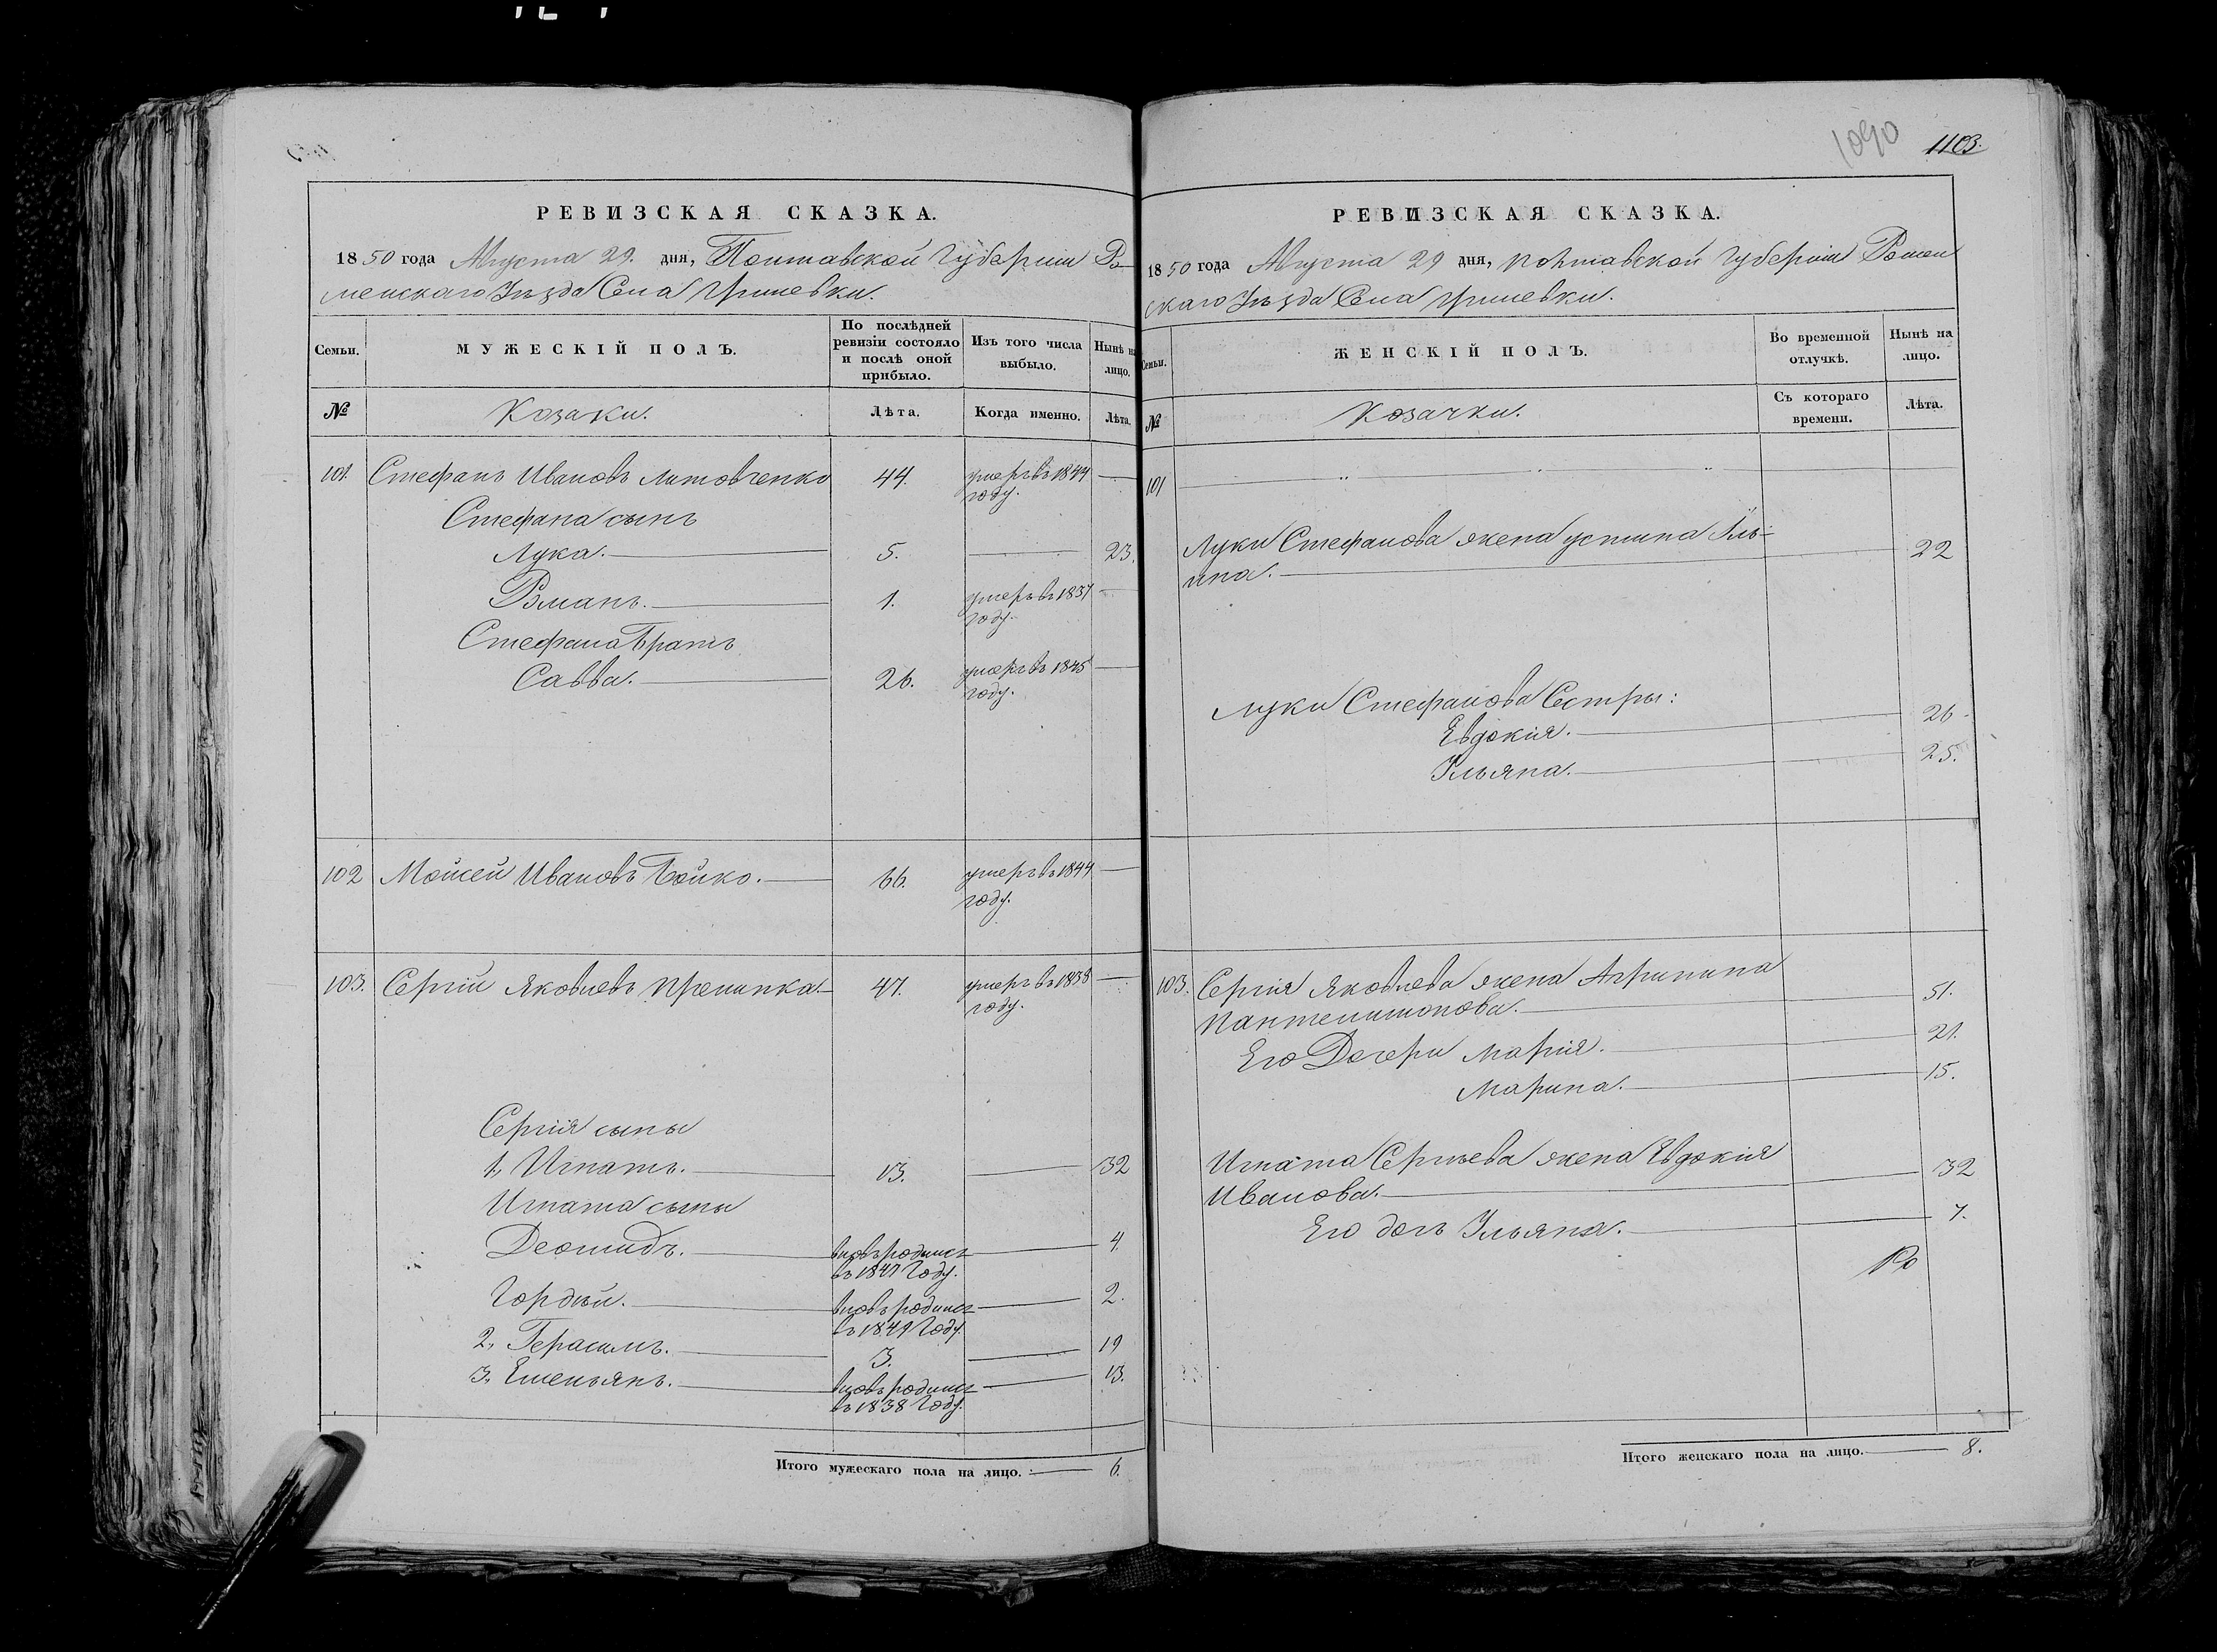 РЕВИЗСКАЯ СКАЗКА.
1850 года Августа 29. дня, Полтавской Губерніи Ро-
менскаго Уѣзда Села Гришевки.
Семьи.
МУЖЕСКІЙ ПОЛЪ.
По послѣдней
ревизіи состояло
и послѣ оной
прибыло.
Изъ того числа
выбыло.
Нынѣ на
лицо.
№
Козаки.
Лѣта.
Когда именно.
Лѣта.
101. Стефанъ Ивановъ Литовченко 44. умеръ въ 1844 —
году.
Стефана сынъ
Лука. — 5. — 23.
Романъ. — 1. умеръ въ 1837 —
году.
Стефана Братъ
Савва. — 26. умеръ въ 1845 —
году.
102 Мойсей Ивановъ Бойко. — 66. умеръ въ 1844 —
году.
103. Сергій Яковлевъ — 47. умеръ въ 1838 —
году.
Сергія сыны
1, Игнатъ. — 13. — 32
Игната сыны
Леонидъ. — вновь родился — 4.
въ 1847 Году.
Гордѣй. — вновь родился — 2.
въ 1849 Году.
2, Герасимъ. — 3. — 19
3, Емельянъ. — вновь родился — 13.
въ 1838 Году.
Итого мужескаго пола на лицо. — 6.
1090 1103.
РЕВИЗСКАЯ СКАЗКА.
1850 года Августа 29 дня, Полтавской Губерніи Ромен
скаго Уѣзда Села Гришевки.
Семьи.
ЖЕНСКІЙ ПОЛЪ.
Во временной
отлучкѣ.
Нынѣ на
лицо.
№
Козачки.
Съ котораго
времени.
Лѣта.
101 — " — " — " —
Луки Стефанова жена Устина Иль-
ина. — 22
Луки Стефанова Сестры:
Евдокія. — 26.
Ульяна. — 25.
103. Сергія Яковлева жена Агрипина
Пантелимонова. — 51.
Его Дочери Марія. — 21.
Марина. — 15.
Игната Сергѣева жена Евдокія
Иванова. — 32
Его дочь Ульяна. — 7.
Итого женскаго пола на лицо. — 8.